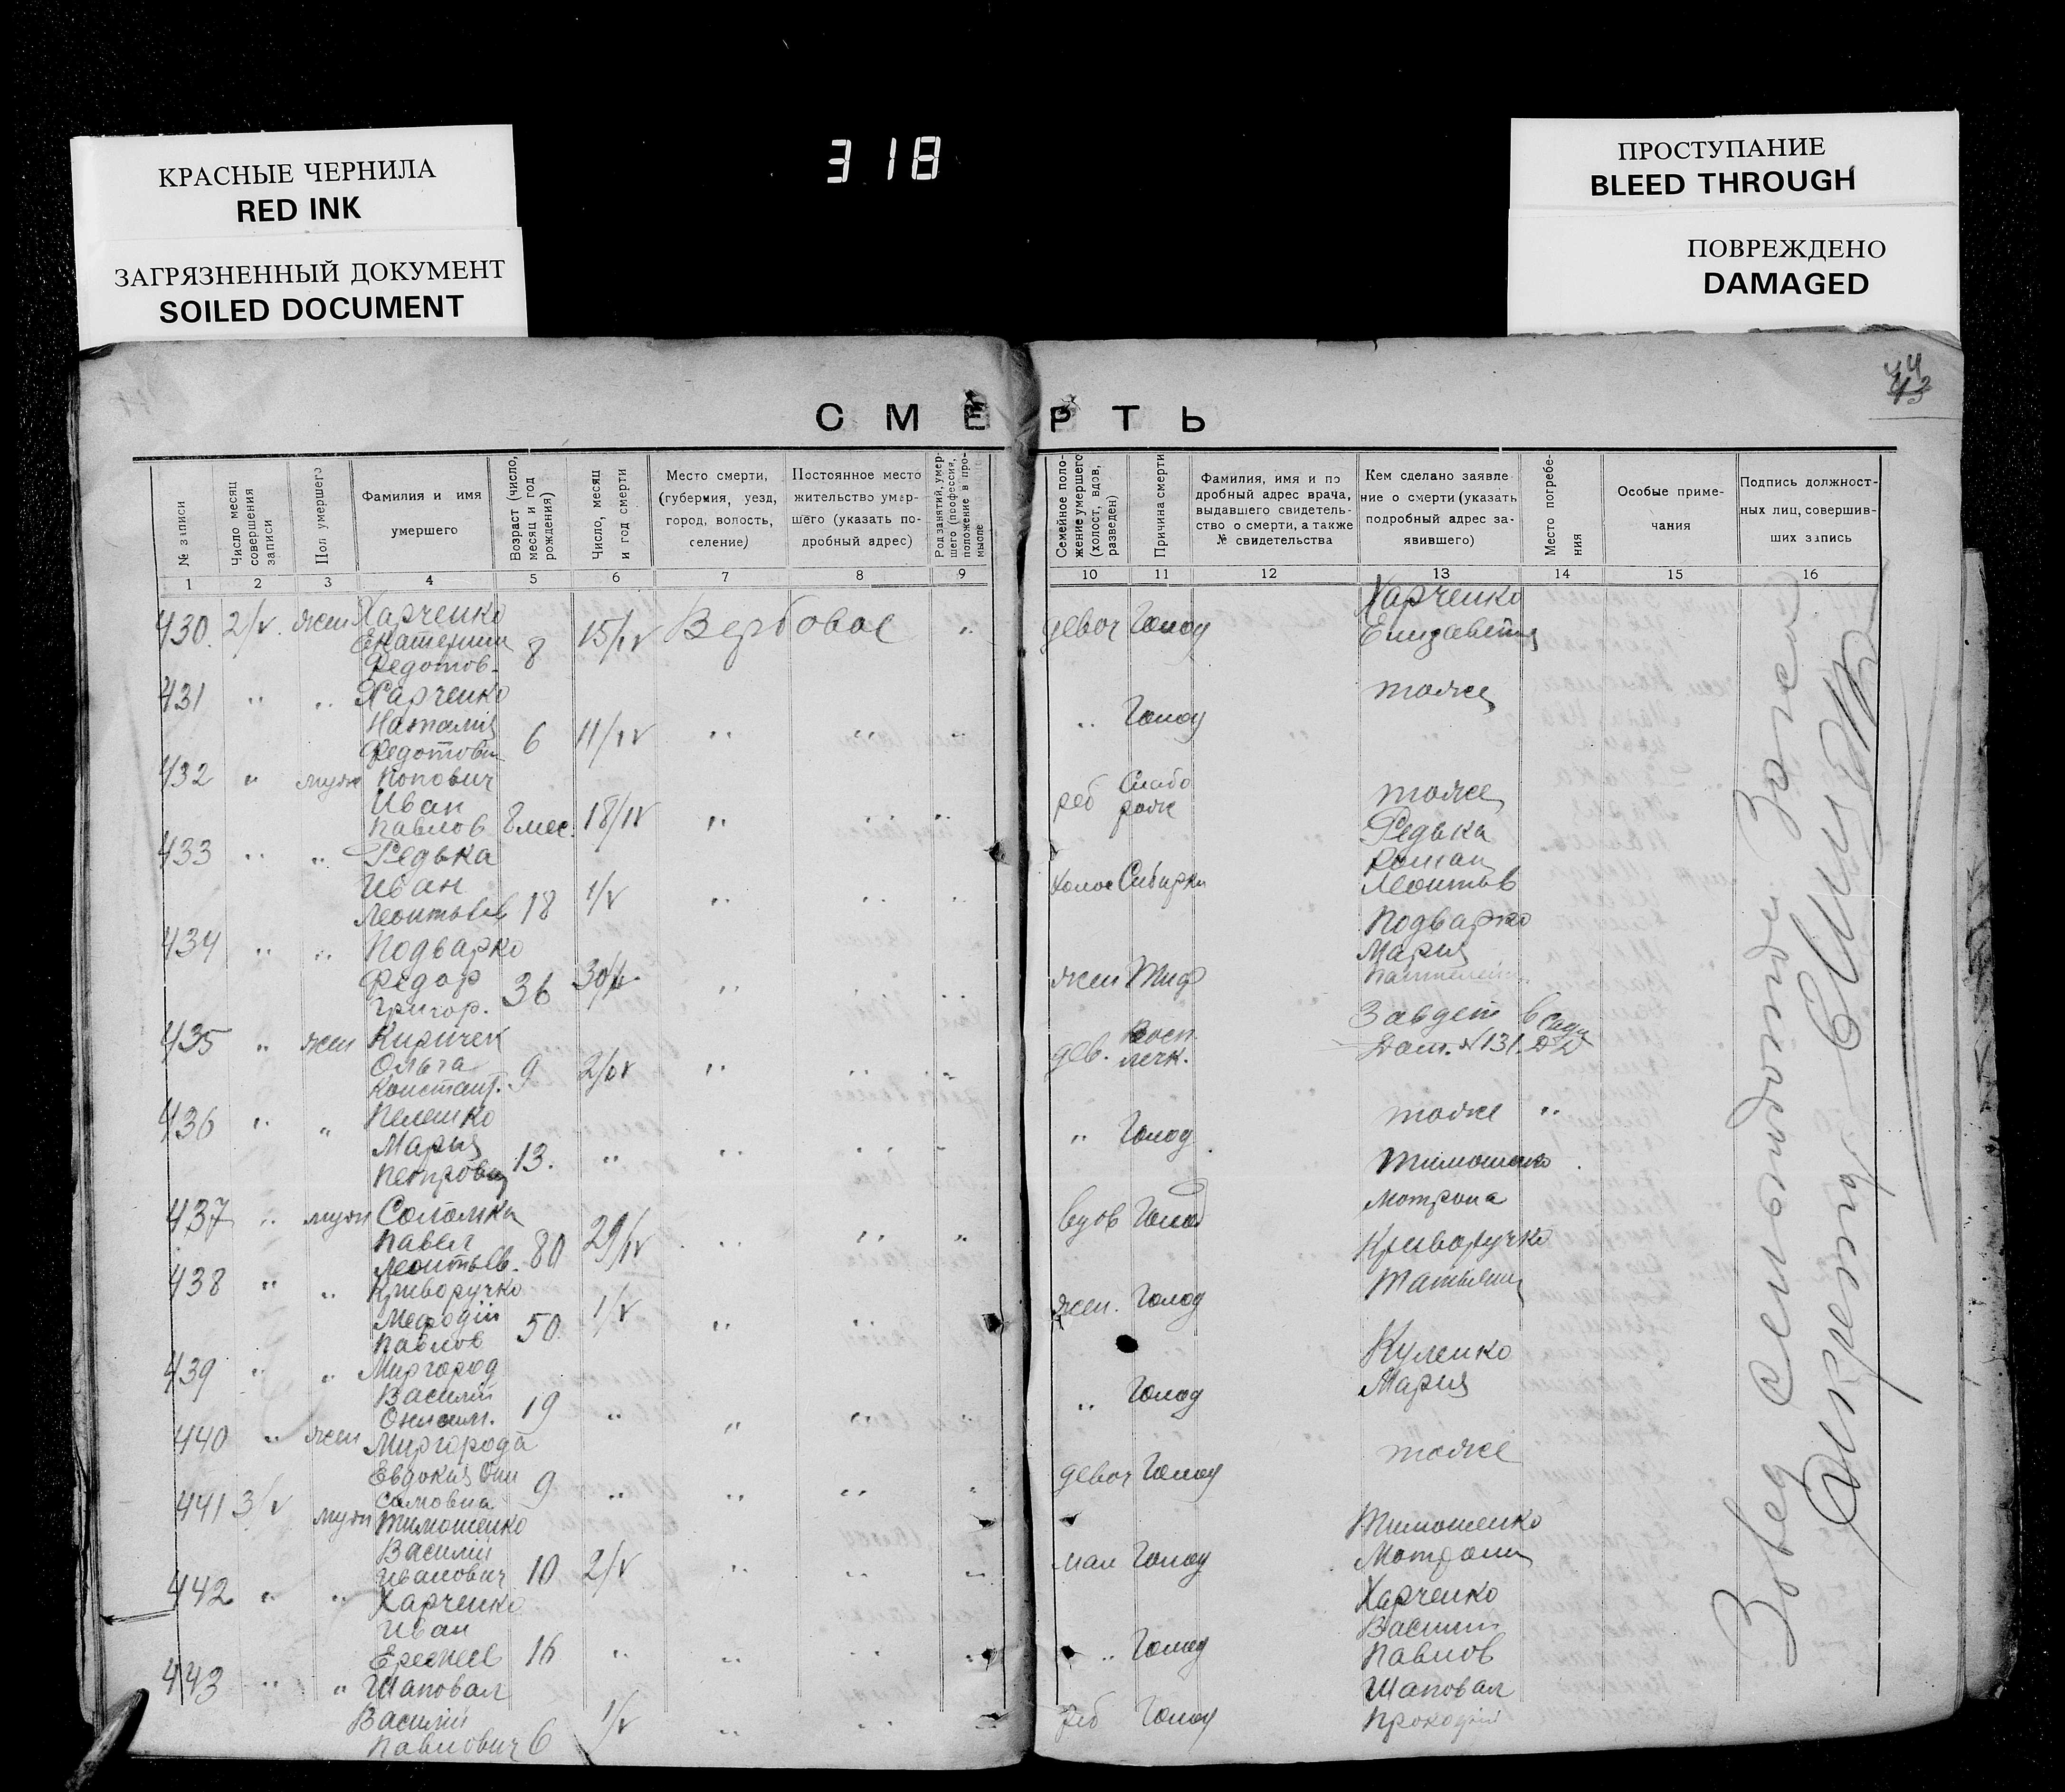 КРАСНЫЕ ЧЕРНИЛА
RED INK
ЗАГРЯЗНЕННЫЙ ДОКУМЕНТ
SOILED DOCUMENT
318
ПРОСТУПАНИЕ
BLEED THROUGH
ПОВРЕЖДЕНО
DAMAGED
СМЕРТЬ
№ записи
Число месяц совершения записи
Пол умершего
Фамилия и имя умершего
Возраст (число, месяц и год рождения)
Число, месяц и год смерти
Место смерти, (губерния, уезд, город, волость, селение)
Постоянное место жительство умершего (указать подробный адрес)
Род занятий, умершего (профессия, положение в промысле
Семейное положение умершего (холост, вдов, разведен)
Причина смерти
Фамилия, имя и подробный адрес врача, выдавшего свидетельство о смерти, а также № свидетельства
Кем сделано заявление о смерти (указать подробный адрес заявившего)
Место погребения
Особые примечания
Подпись должностных лиц, совершивших запись
1 2 3 4 5 6 7 8 9 10 11 12 13 14 15 16
430. 2/V. жен Харченко Екатерина Федотов. 8 15/IV Вербовое " девоч Голод Харченко Елизавета
431 " " Харченко Наталия Федотовн 6 11/IV " " " " Голод тоже
432 " муж Попович Иван Павлов 8 мес. 18/IV " " " реб Слабо рож тоже
433 " " Редька Иван Леонтьев 18 1/V " " " холос Сибирка Редька Роман Леонтьев
434 " " Подварко Федор Григор. 36 30/IV " " " жен Тиф Подварко Мария
435 " жен Киричек Ольга Констант. 9 2/IV " " " дев. Восп. легк. Завдет
436 " " Пелешко Мария Петровн 13. " " " " " Голод тоже "
437 " муж Соломка Павел Леонтьев. 80 29/IV " " " вдов Голод Тимошенко Мотрона
438 " " Криворучко Мефодій Павлов 50. 1/V " " " жен. Голод Криворучко Татьяна
439 " " Миргород Василий Онисим. 19 " " " " " Голод Куленко Мария
440 " жен Миргорода Евдокия Онисимовна 9 " " " " девоч Голод тоже
441 3/V муж Тимошенко Василий Иванович 10 2/V " " " мал Голод Тимошенко Мотрона
442 " " Харченко Иван 16 " " " " " Голод Харченко Василий Павлов
443 " " Шаповал Василий Павлович 6 1/V " " " реб Голод Шаповал